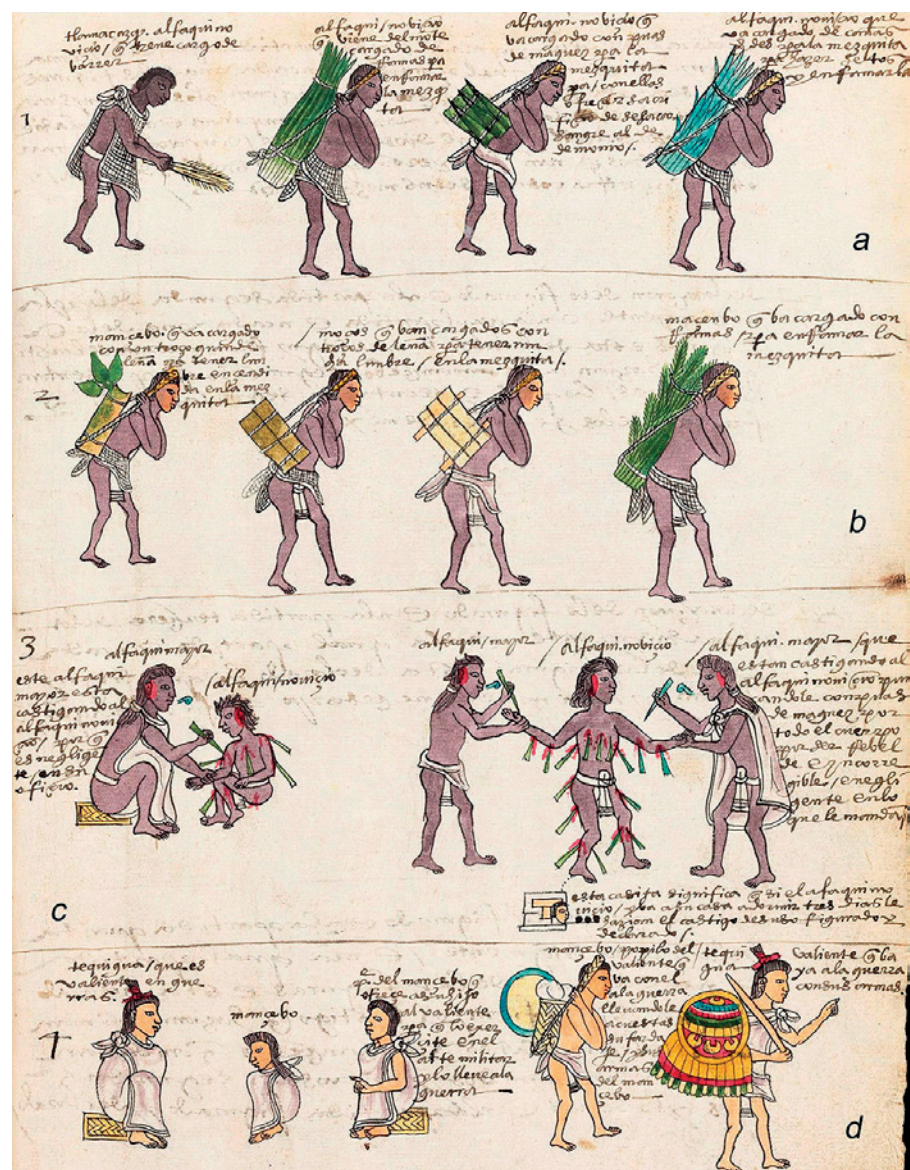 tlamacazq. alfaqui no
vicio / q̃ tiene cargo de
barrer
alfaqui / novicio
q̃ viene del mõte
cargado de
Ramas pa
enRamar
la mezq
ta
alfaqui. novicio q̃
va cargado con puas
de maguez / para la
mezquita
pa / con ellas
ofrecer sacri
ficio de sacar
sangre al de
demonio /.
alfaqui. novicio que
va cargado de cañas
para la mezquita
y enRamar la
1
a
mancebo. q̃ va cargado
con un troço grande
leña pa tener lum
bre encendi
da en la mez
quita
moços q̃ van cargados con
troços de leña / para tener
lumbre / en la mezquita /.
macenbo q̃ ba cargado con
Ramas / para enRamar la
mezquita
2
b
3
alfaqui mayor
este alfaqui
mayor esta
castigando al
alfaqui novi
çio / por q̃
es neglige
te / en su
oficio.
/ alfaqui / noviçio
alfaqui / mayor
/ alfaqui. noviçio
/ alfaqui. mayor / que
estan castigando al
alfaqui noviçio pun
çandole con puas
de maguez por
todo el cuerpo
por ser Rebel
de E yncorre
gible / e negli
gente en lo
que le mandã
c
esta casita significa q̃ si el alfaqui no
viçio / yva a su casa a dormir tres dias le
dazian el castigo de suso figurado y
declarado /.
tequigua / que es
valiente en gue
rras.
mançebo
pe. del mancebo q̃
ofreçe a su hijo
al valiente
pa q̃ lo exer
cite en el
arte militar
y lo lleve a la
guerra
mançebo / popilo del
valiente q̃
va con el
a la guerra
llevandole
acuestas
su farda
je / y sus
armas
del man
çebo
/ tequi
gua
valiente q̃ ba
ya a la guerra
con sus armas.
4
d